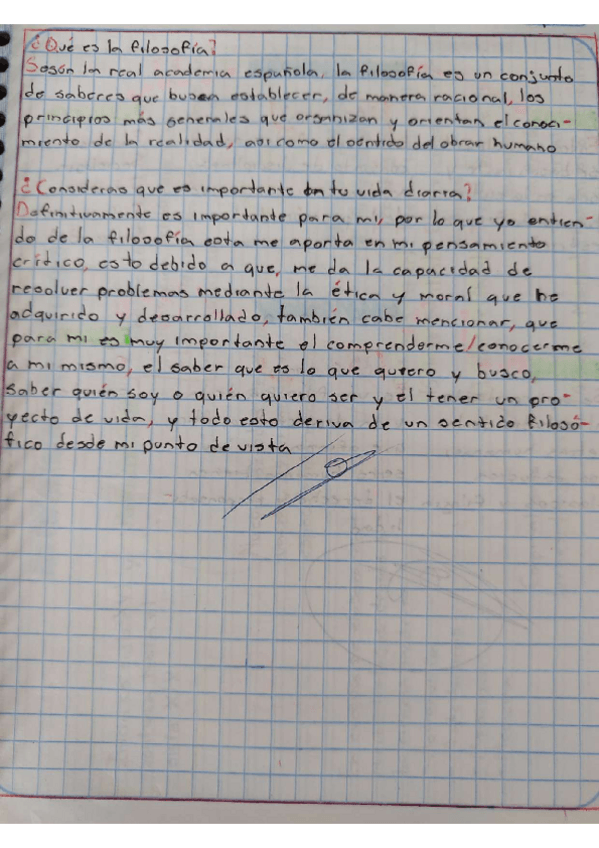 ¿Qué es la filosofía?
Según la real academia española, la filosofía es un conjunto
de saberes que busan establecer, de manera racional, los
principios más generales que organizan y orientan el conoci-
miento de la realidad, asi como el sentido del obrar humano
¿Consideras que es importante en tu vida diaria?
Definitivamente es importante para mi, por lo que yo entien-
do de la filosofía esta me aporta en mi pensamiento
crítico, esto debido a que, me da la capacidad de
resolver problemas mediante la ética y moral que he
adquirido y desarrollado, también cabe mencionar, que
para mi es muy importante el comprenderme/conocerme
a mi mismo, el saber que es lo que quiero y busco,
saber quién soy o quién quiero ser y el tener un pro-
yecto de vida, y todo esto deriva de un sentido filosó-
fico desde mi punto de vista